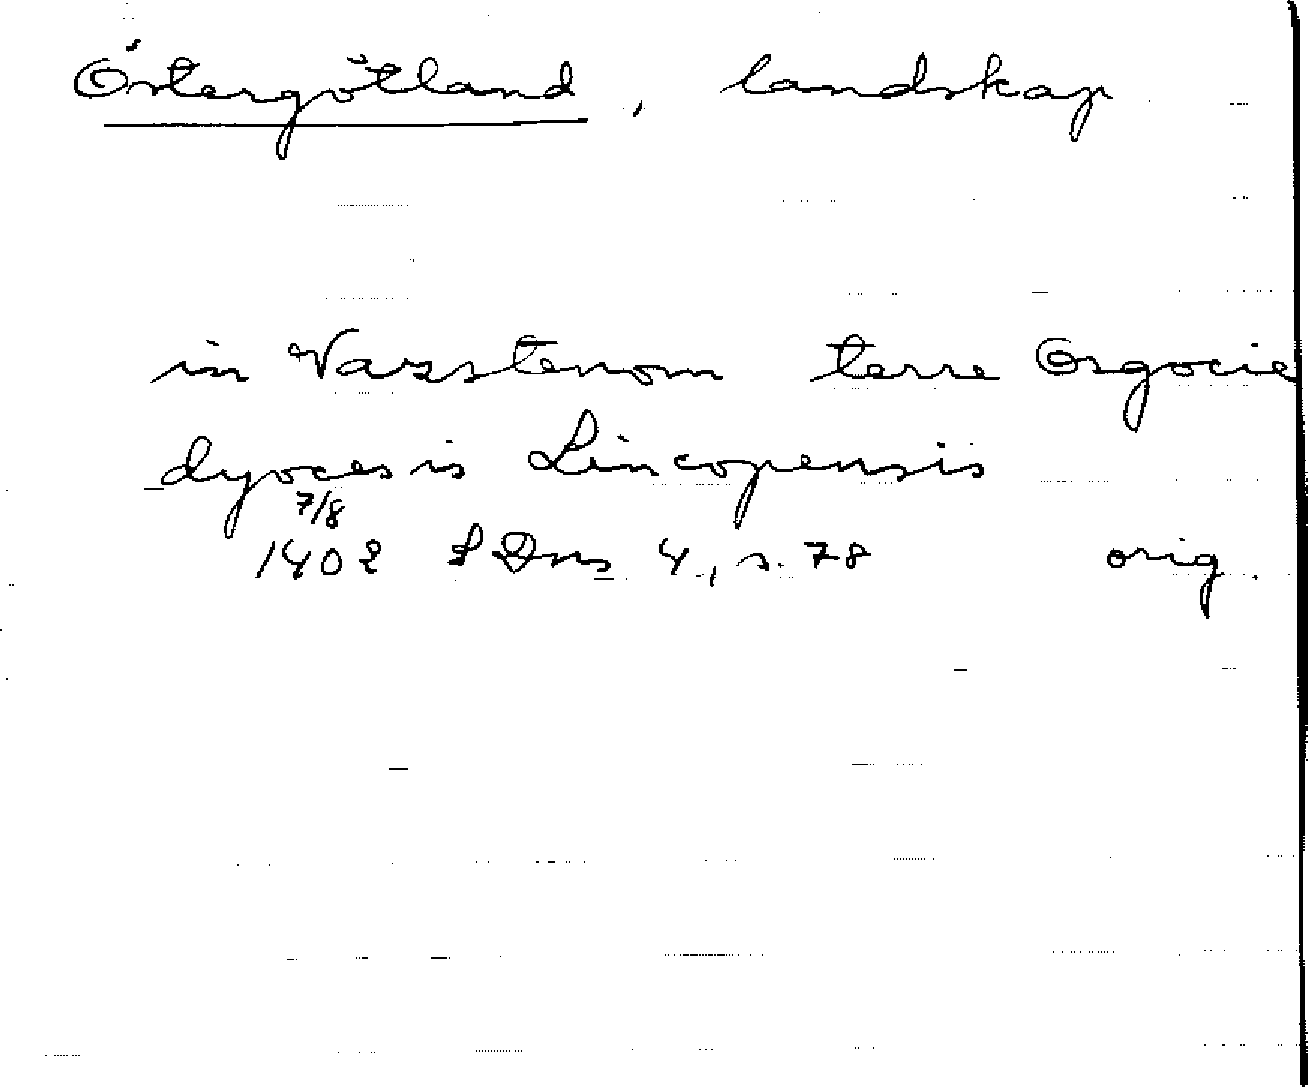 Östergötland, landskap
in Vazstenom terre Osgocie
dyocesis Lincopensis
7/8
1402 SDns 4, s. 78 orig.